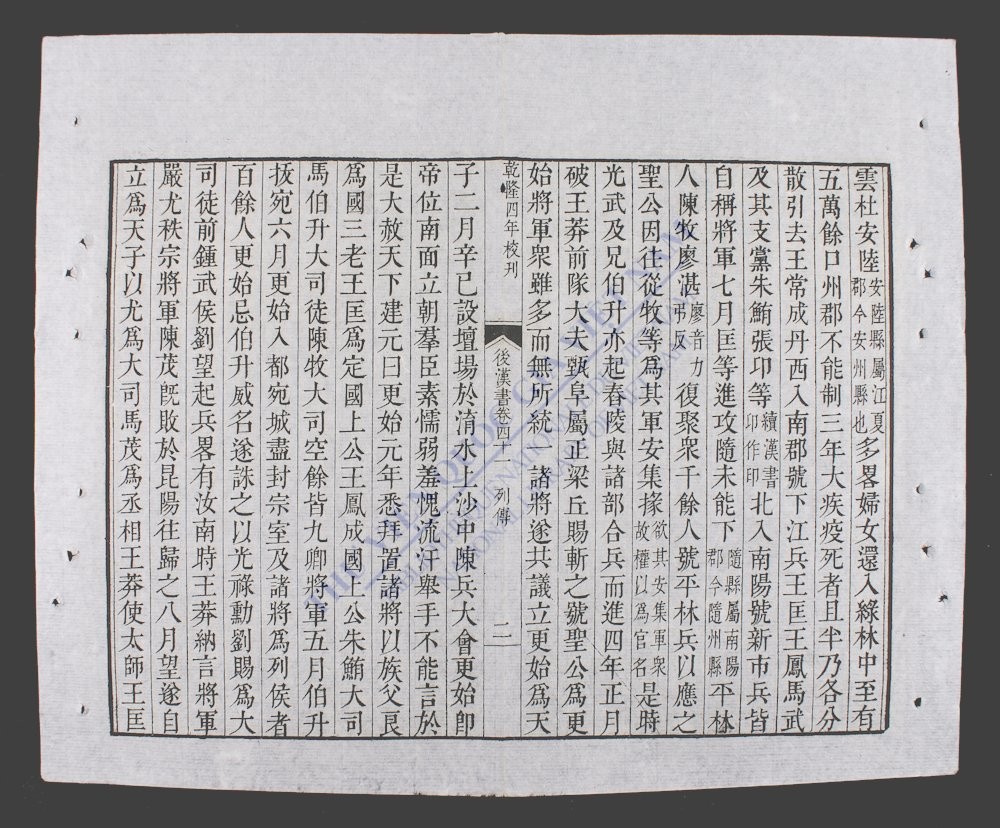 雲杜安陸安陸縣屬江夏郡今安州縣也多畧婦女還入綠林中至有
五萬餘口州郡不能制三年大疾疫死者且半乃各分
散引去王常成丹西入南郡號下江兵王匡王鳳馬武
及其支黨朱鮪張印等續漢書印作印北入南陽號新市兵皆
自稱將軍七月匡等進攻隨未能下隨縣屬南陽郡今隨州縣平林
人陳牧廖湛廖音力弔反復聚衆千餘人號平林兵以應之
聖公因往從牧等爲其軍安集掾欲其安集軍衆故權以爲官名是時
光武及兄伯升亦起舂陵與諸部合兵而進四年正月
破王莽前隊大夫甄阜屬正梁丘賜斬之號聖公爲更
始將軍衆雖多而無所統一諸將遂共議立更始爲天
乾隆四年校刊
後漢書卷四十一 列傳
二
子二月辛巳設壇場於淯水上沙中陳兵大會更始卽
帝位南面立朝羣臣素懦弱羞愧流汗舉手不能言於
是大赦天下建元曰更始元年悉拜置諸將以族父良
爲國三老王匡爲定國上公王鳳成國上公朱鮪大司
馬伯升大司徒陳牧大司空餘皆九卿將軍五月伯升
拔宛六月更始入都宛城盡封宗室及諸將爲列侯者
百餘人更始忌伯升威名遂誅之以光祿勳劉賜爲大
司徒前鍾武侯劉望起兵畧有汝南時王莽納言將軍
嚴尤秩宗將軍陳茂旣敗於昆陽往歸之八月望遂自
立爲天子以尤爲大司馬茂爲丞相王莽使太師王匡
THƯ VIỆN QUỐC GIA VIỆT NAM
BIBLIOTHEQUE NATIONALE DU VIETNAM
NATIONAL LIBRARY OF VIETNAM